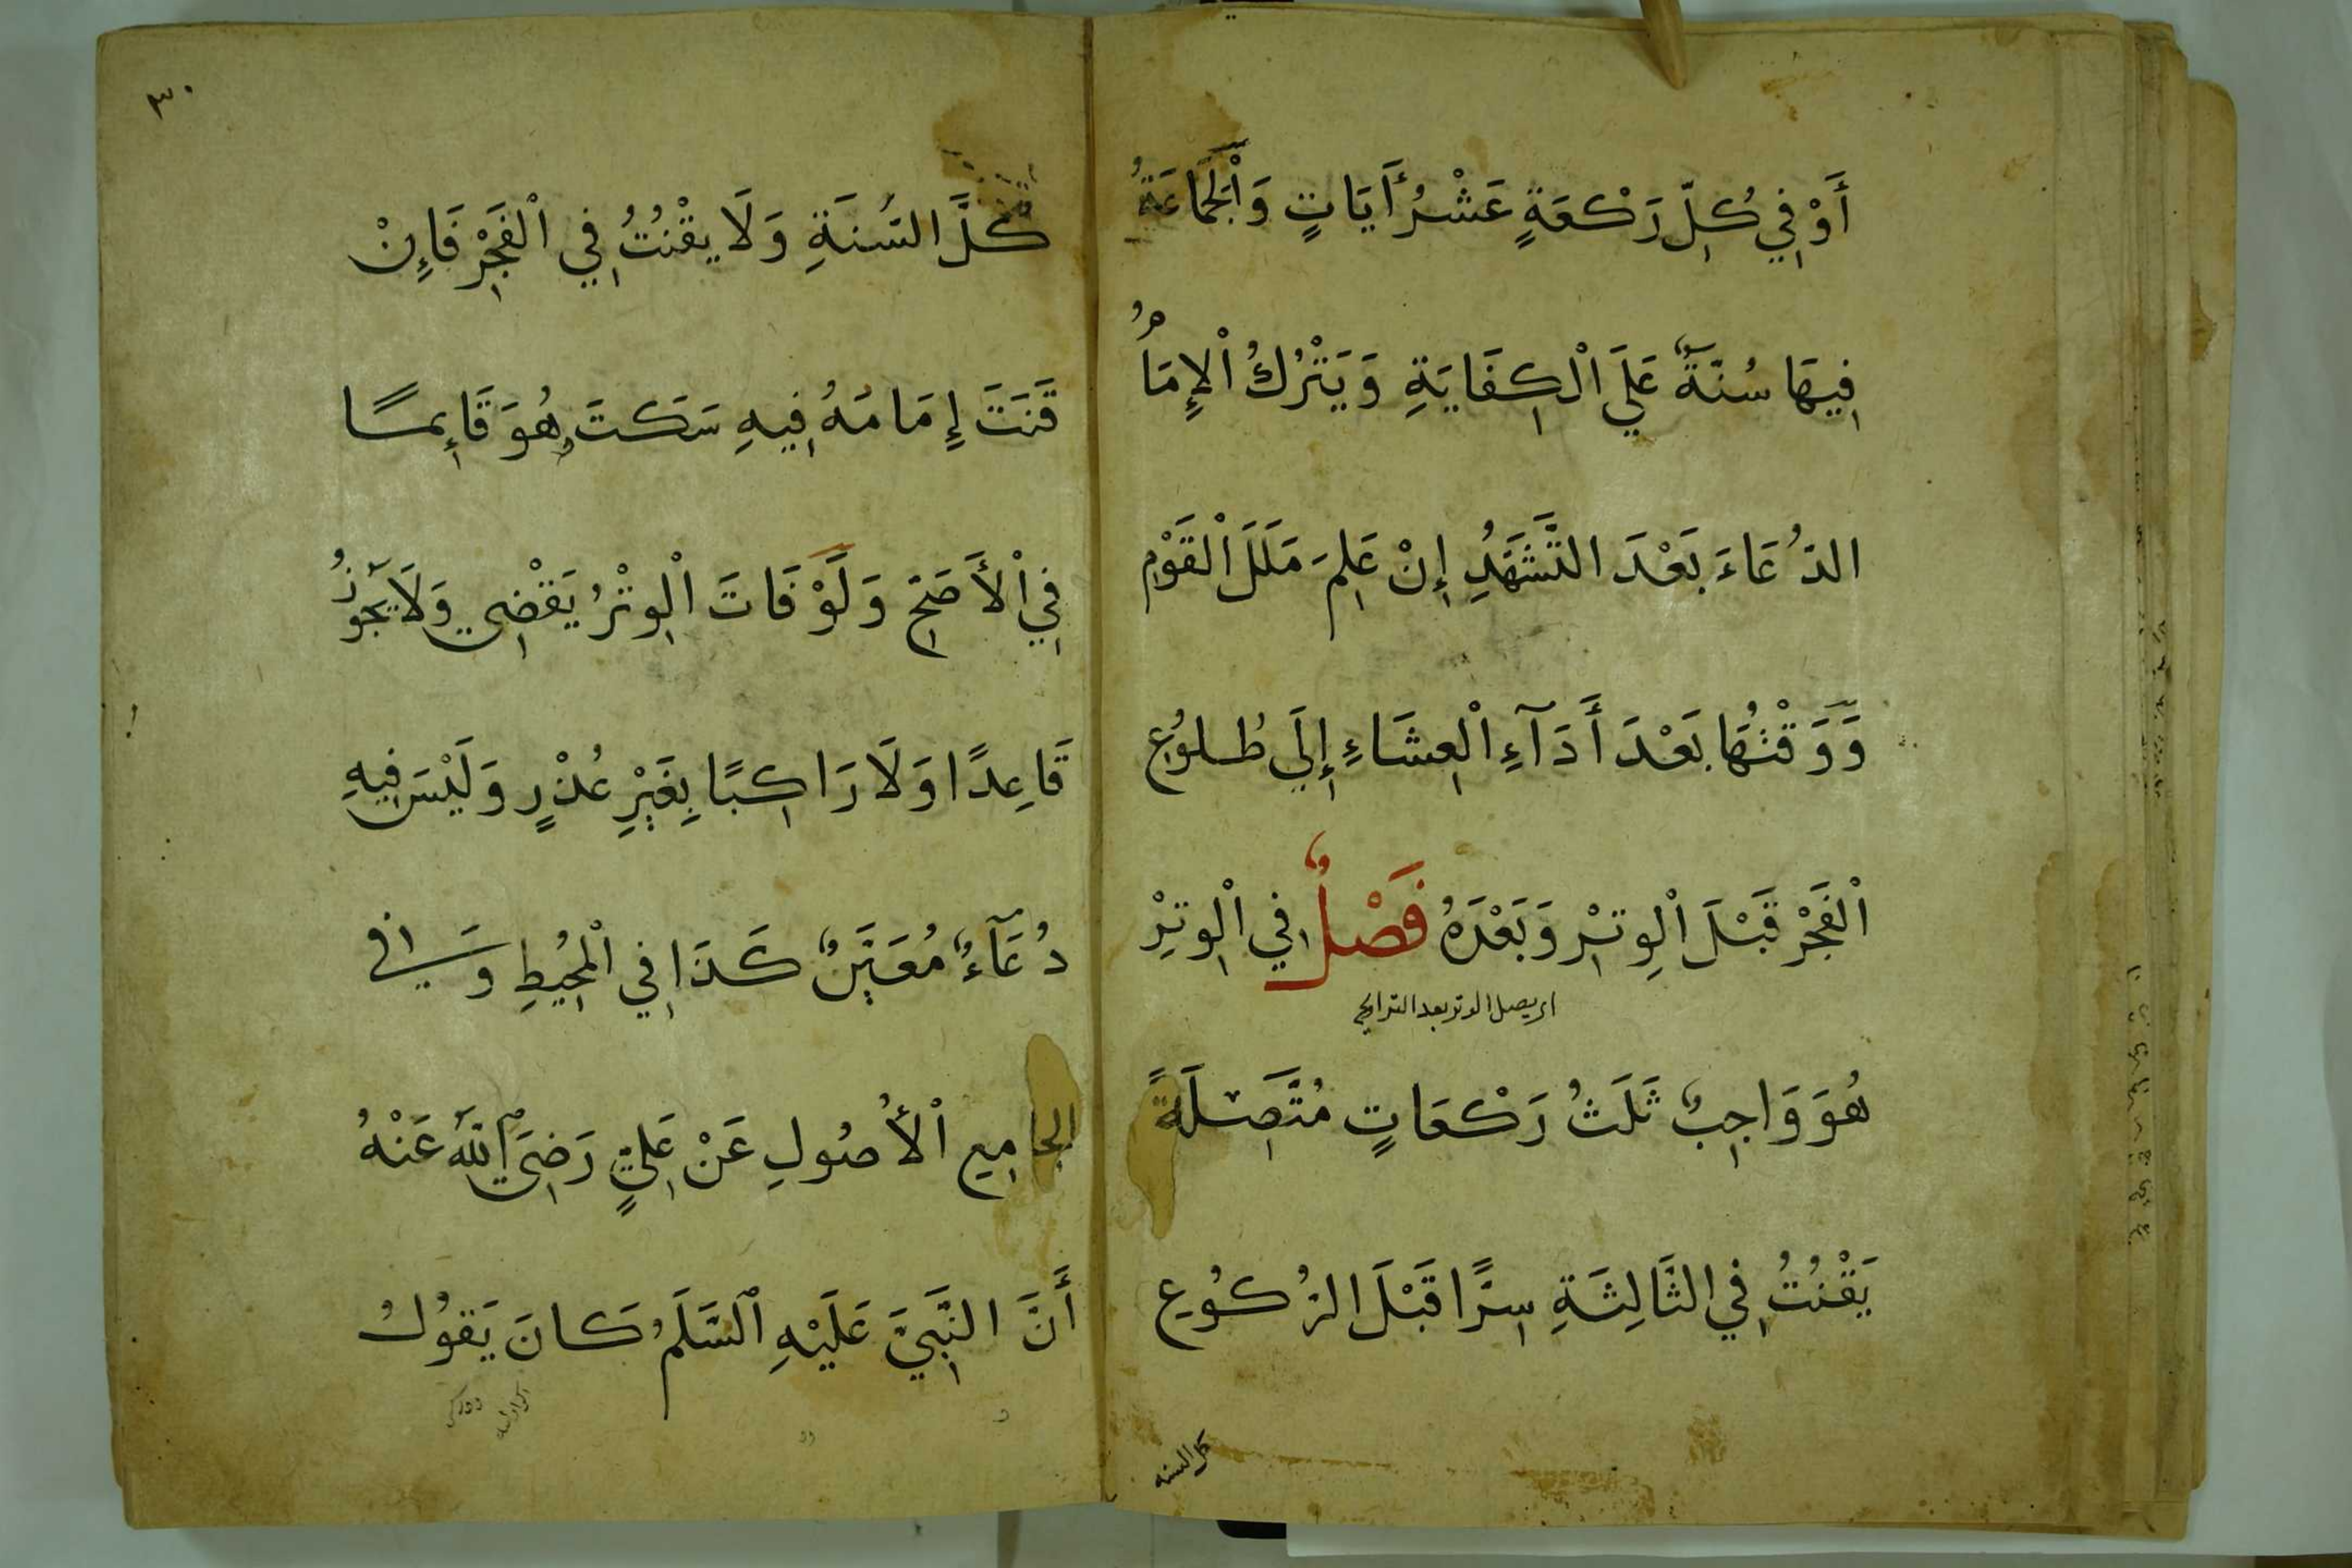 أَوْ فِي كُلِّ رَكْعَةٍ عَشْرُ أَيَاتٍ وَالْجَمَاعَةُ
فِيهَا سُنَّةٌ عَلَى الْكِفَايَةِ وَيَتْرُكُ الْإِمَامُ
الدُّعَاءَ بَعْدَ التَّشَهُّدِ إِنْ عَلِمَ مَلَلَ الْقَوْمِ
وَوَقْتُهَا بَعْدَ أَدَآءِ الْعِشَاءِ إِلَى طُلُوعِ
الْفَجْرِ قَبْلَ الْوِتْرِ وَبَعْدَهُ فَصْلٌ فِي الْوِتْرِ
يصل الوتر بعد التراويح
هُوَ وَاجِبٌ ثَلَثُ رَكْعَاتٍ مُتَّصِلَةً
يَقْنُتُ فِي الثَّالِثَةِ سِرًّا قَبْلَ الرُّكُوعِ
كل السنه
٣٠
كُلَّ السَّنَةِ وَلَا يَقْنُتُ فِي الْفَجْرِ فَإِنْ
قَنَتَ إِمَامُهُ فِيهِ سَكَتَ وَهُوَ قَائِمًا
فِي الْأَصَحِّ وَلَوْ فَاتَ الْوِتْرُ يَقْضِي وَلَا يَجُوزُ
قَاعِدًا وَلَا رَاكِبًا بِغَيْرِ عُذْرٍ وَلَيْسَ فِيهِ
دُعَآءٌ مُعَيَّنٌ كَذَا فِي الْمُحِيطِ وَفِي
الجَامِعِ الْأُصُولِ عَنْ عَلِيٍّ رَضِيَ اللهُ عَنْهُ
أَنَّ النَّبِيَّ عَلَيْهِ السَّلَمُ كَانَ يَقُولُ